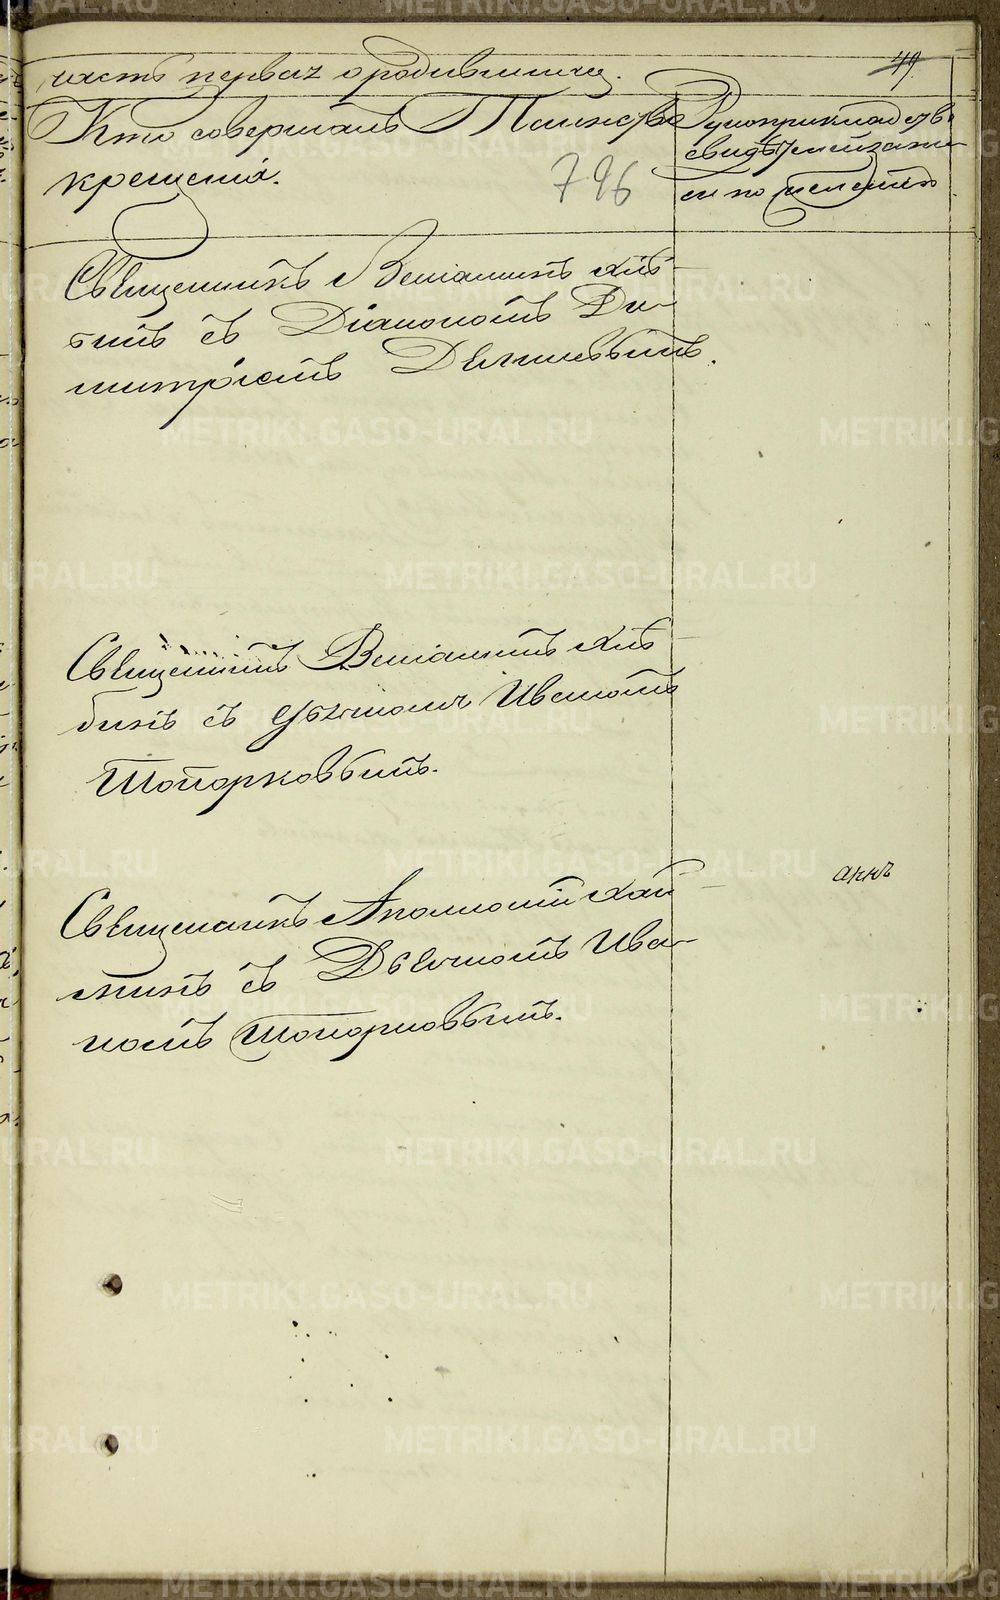 часть первая о родившихся.
49
Кто совершалъ Таинство
крещенія.
796
Рукоприкладство
свидѣтелей записи
по желанію
Священникъ Веніаминъ Хлѣ-
бинъ съ Діакономъ Ди-
митріемъ
Священникъ Веніаминъ Хлѣ
бинъ съ Дьячкомъ Иваномъ
Топорковымъ.
анна
Священникъ Аполлоній
съ Дьячкомъ Ива-
номъ Топорковымъ.
METRIKI.GASO-URAL.RU